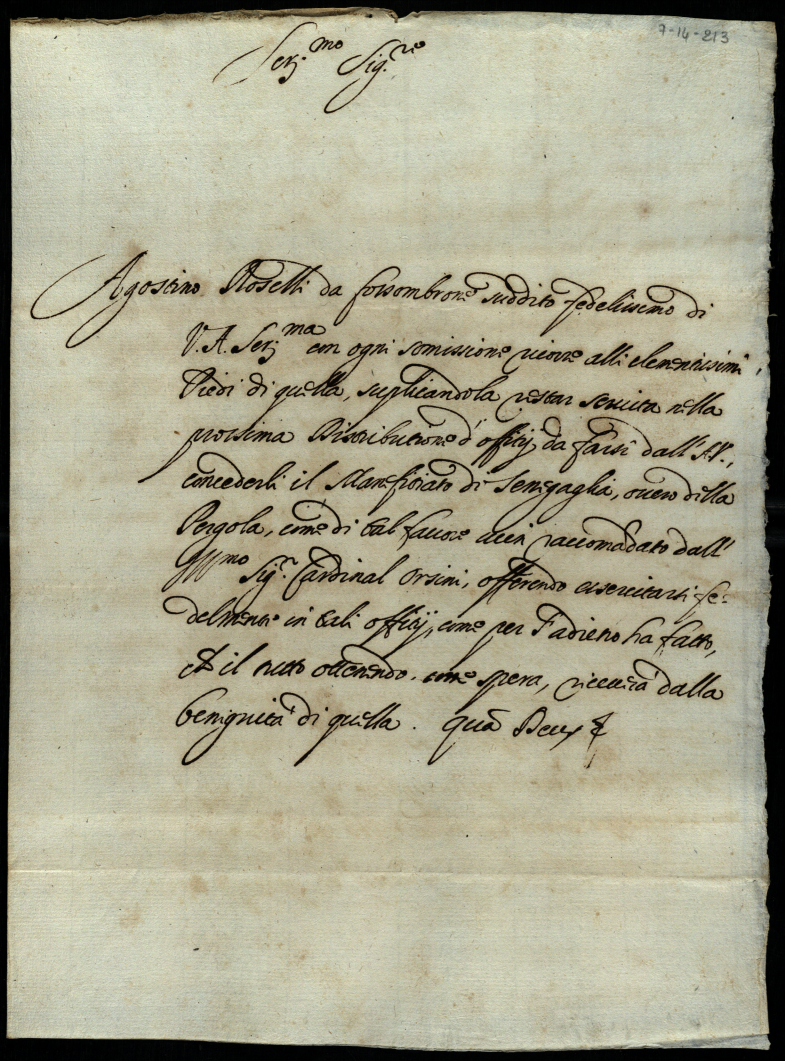 7-14-213
Ser.mo Sig.re
Agostino Roselli da fossombrone suddito fedelissimo di
V. A. Ser.ma con ogni somissione ricorre alli clementissimi
Piedi di quella, suplicandola restar servita nella
prossima Distributione d'offitij da farsi dall'A.V.,
concederli il di Senegaglia, overo della
Pergola, come di tal favore vien raccomādato dall'
Ill.mo Sig.r Cardinal Orsini, offerendo essercitarsi fe-
delmente in tali offitij, come per l'adietro ha fatto,
Et il tutto ottenendo, come spera, riceverà dalla
benignità di quella. quā Deus &